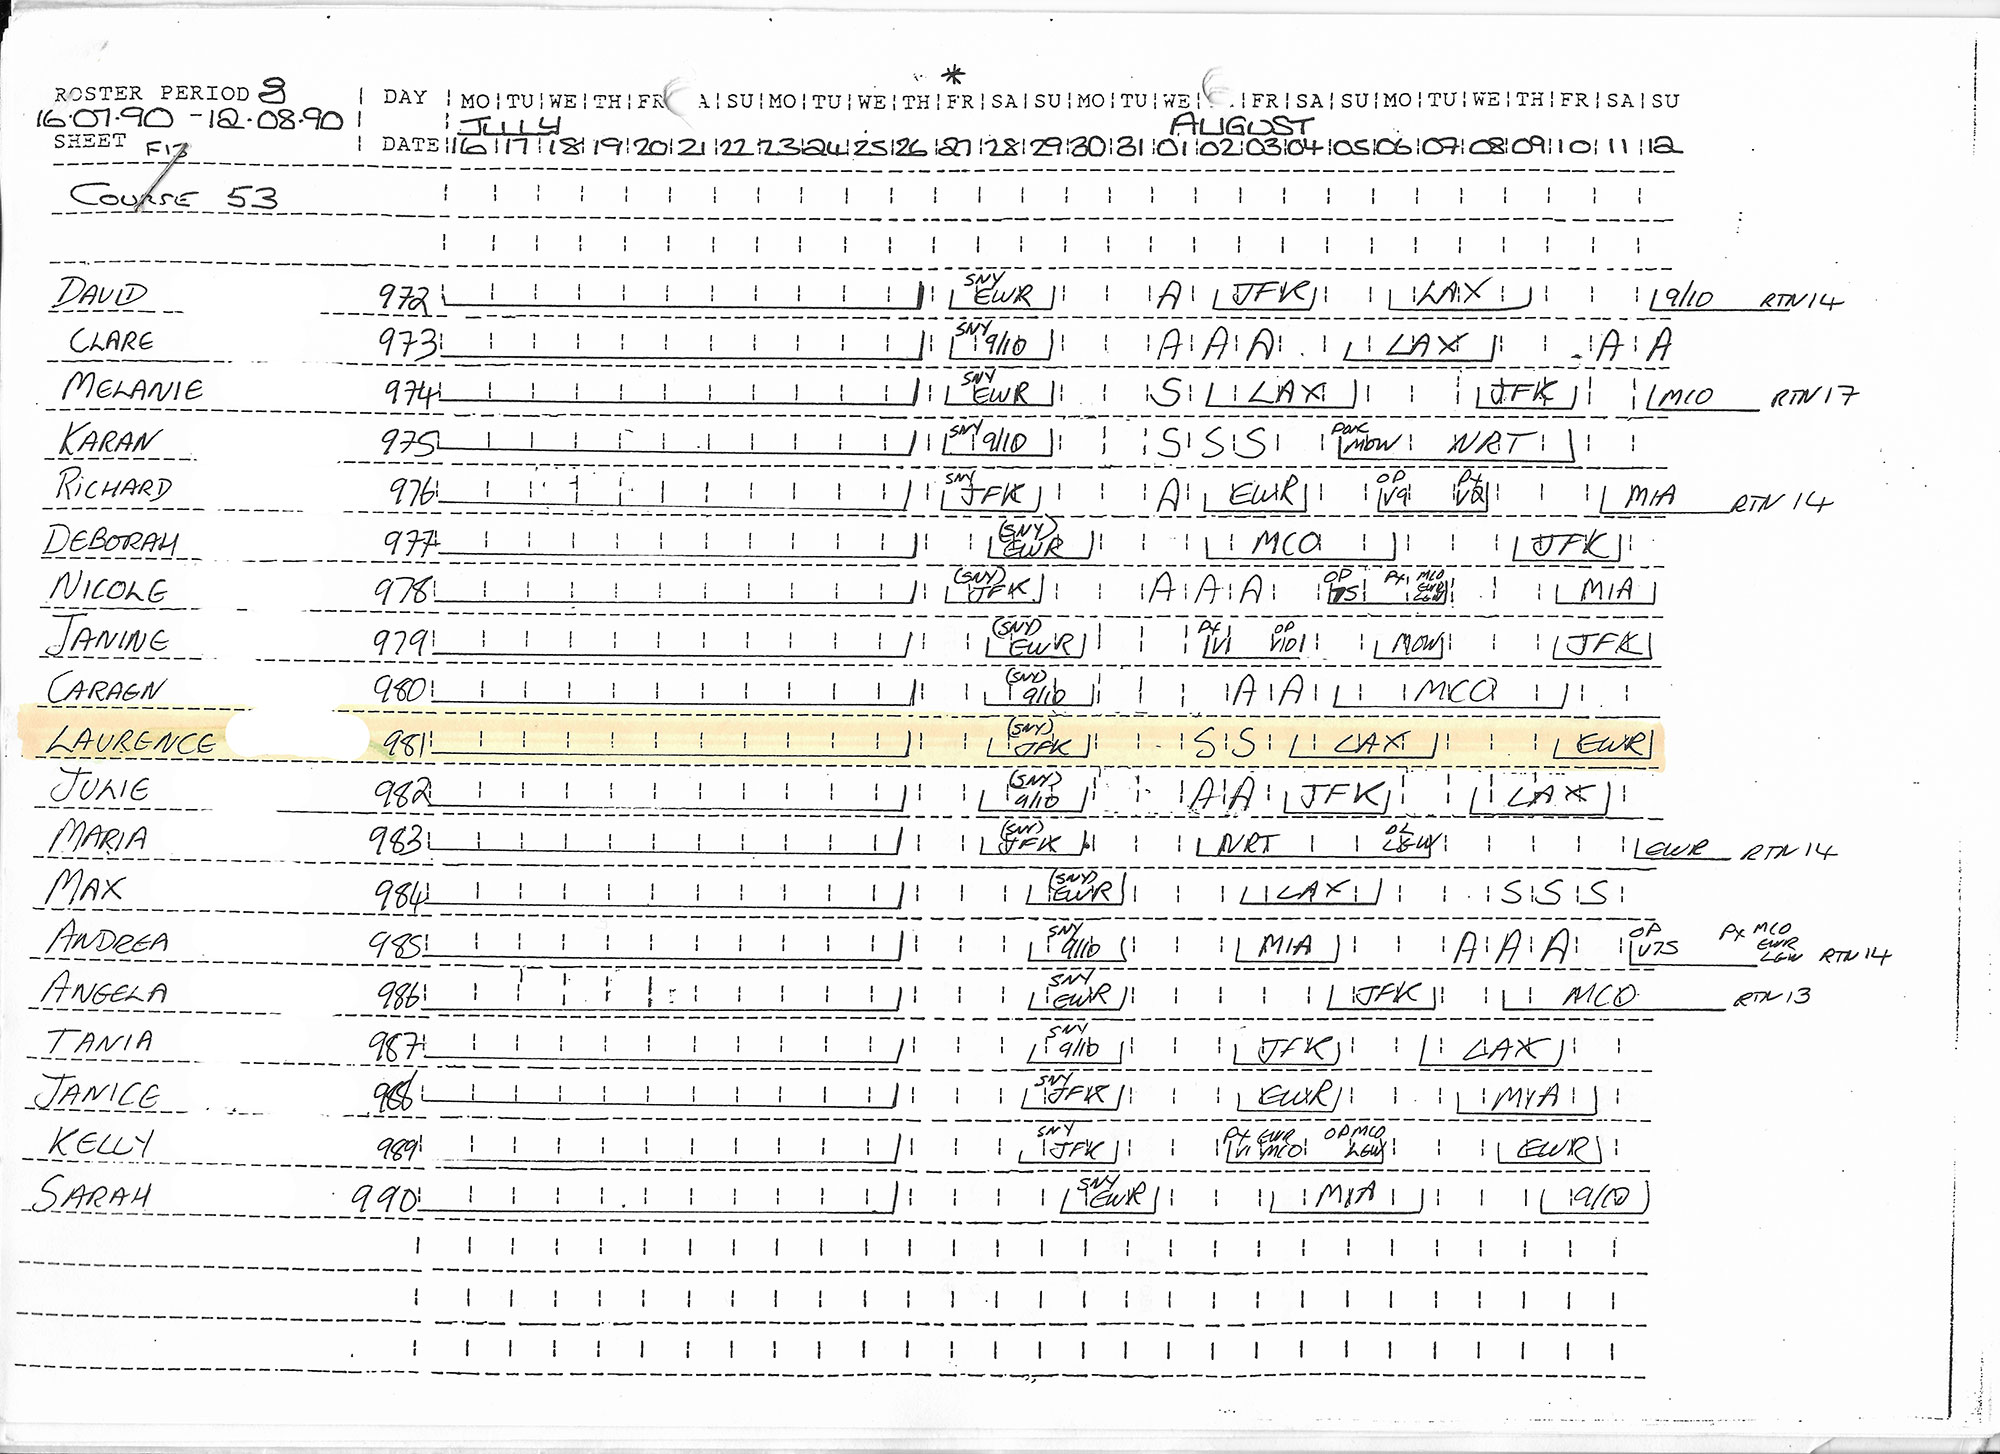 *
ROSTER PERIOD 8 | DAY | MO|TU|WE|TH|FR A|SU|MO|TU|WE|TH|FR|SA|SU|MO|TU|WE| |FR|SA|SU|MO|TU|WE|TH|FR|SA|SU
16.07.90 - 12.08.90 | JULY AUGUST
SHEET F13 | DATE 16|17|18|19|20|21|22|23|24|25|26|27|28|29|30|31|01|02|03|04|05|06|07|08|09|10|11|12
COURSE 53
DAVID 972 SNY EWR A JFK LAX 9/10 RTN 14
CLARE 973 SNY 9/10 A A A LAX A A
MELANIE 974 SNY EWR S LAX JFK MCO RTN 17
KARAN 975 SNY 9/10 S S S MOW NRT
RICHARD 976 SNY JFK A EWR OP V9 PX V2 MIA RTN 14
DEBORAH 977 (SNY) EWR MCO JFK
NICOLE 978 (SNY) JFK A A A OP 75 PX MCO EWR LGW MIA
JANINE 979 (SNY) EWR PX V1 OP V101 MOW JFK
CARAEN 980 (SNY) 9/10 A A MCO
LAURENCE 981 (SNY) JFK S S LAX EWR
JULIE 982 (SNY) 9/10 A A JFK LAX
MARIA 983 (SNY) JFK NRT LGW EWR RTN 14
MAX 984 (SNY) EWR LAX S S S
ANDREA 985 SNY 9/10 MIA A A A OP V75 PX MCO EWR LGW RTN 14
ANGELA 986 SNY EWR JFK MCO RTN 13
TANIA 987 SNY 9/10 JFK LAX
JANICE 988 SNY JFK EWR MIA
KELLY 989 SNY JFK PX EWR V1 MCO OP MCO LGW EWR
SARAH 990 SNY EWR MIA 9/10